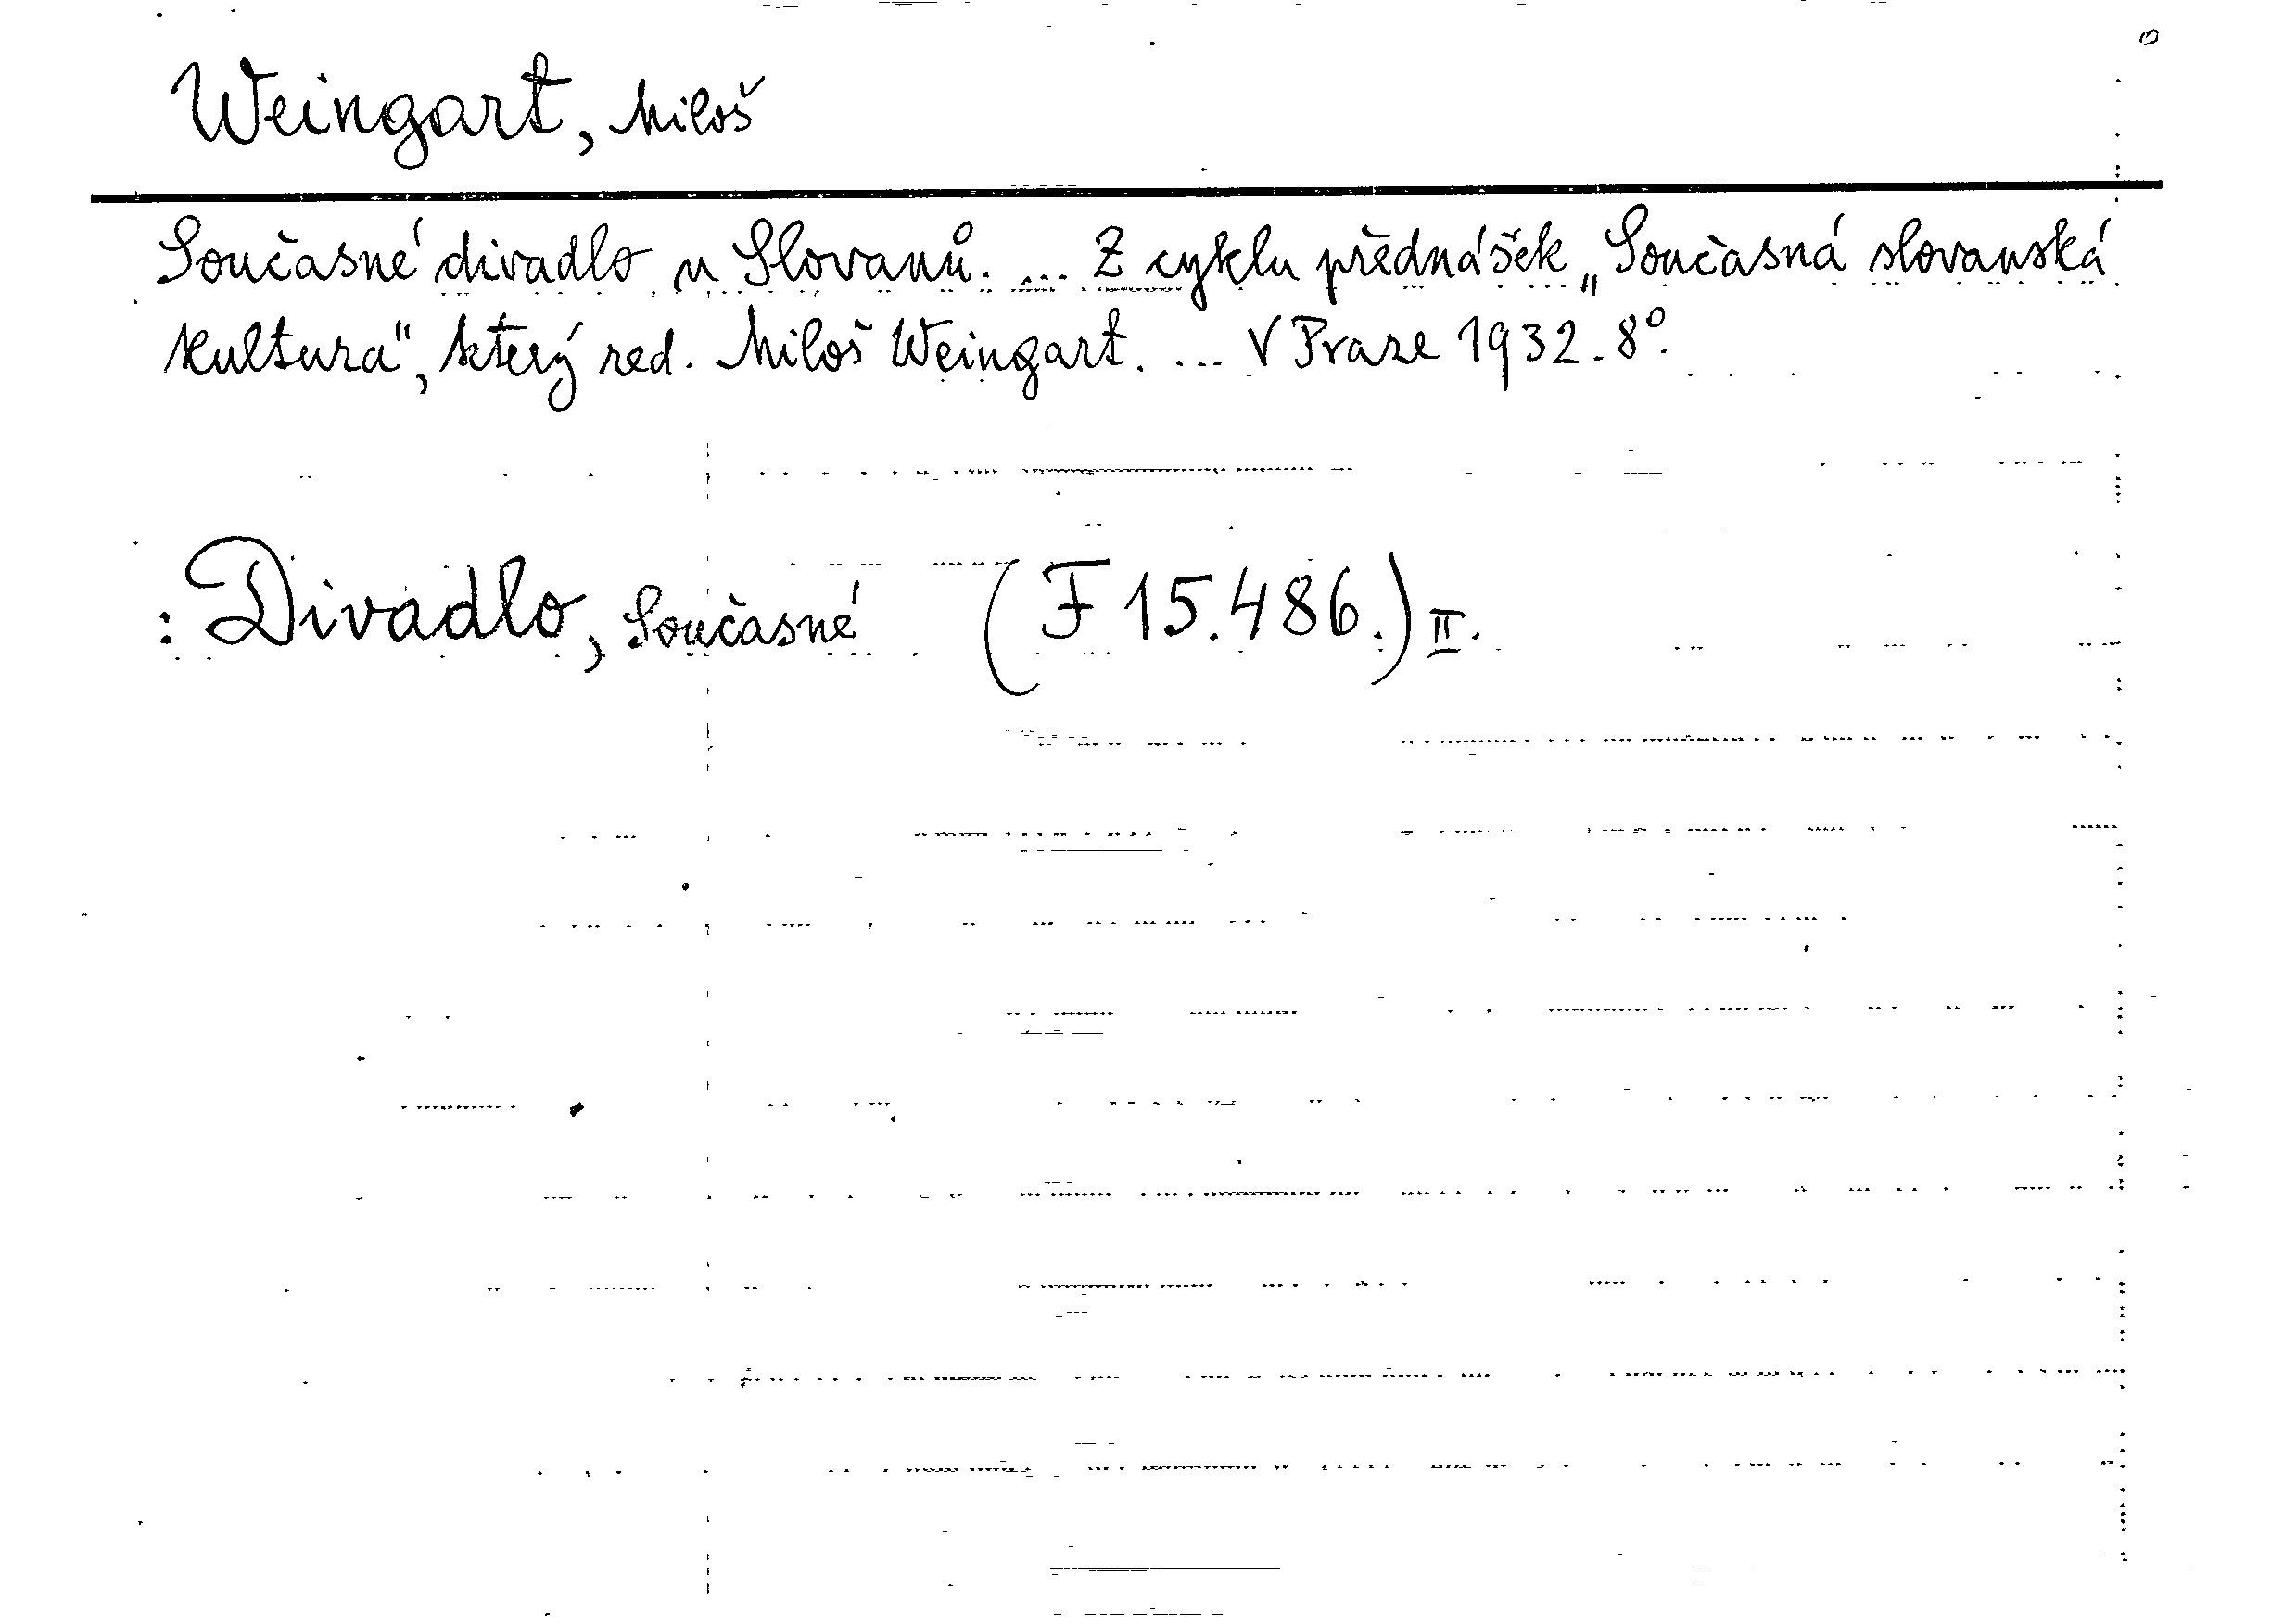 Weingart, Miloš
Současné divadlo u Slovanů. ... Z cyklu přednášek „Současná slovanská
kultura“, který red. Miloš Weingart. ... V Praze 1932. 8°.
: Divadlo, Současné (F 15.486.) II.